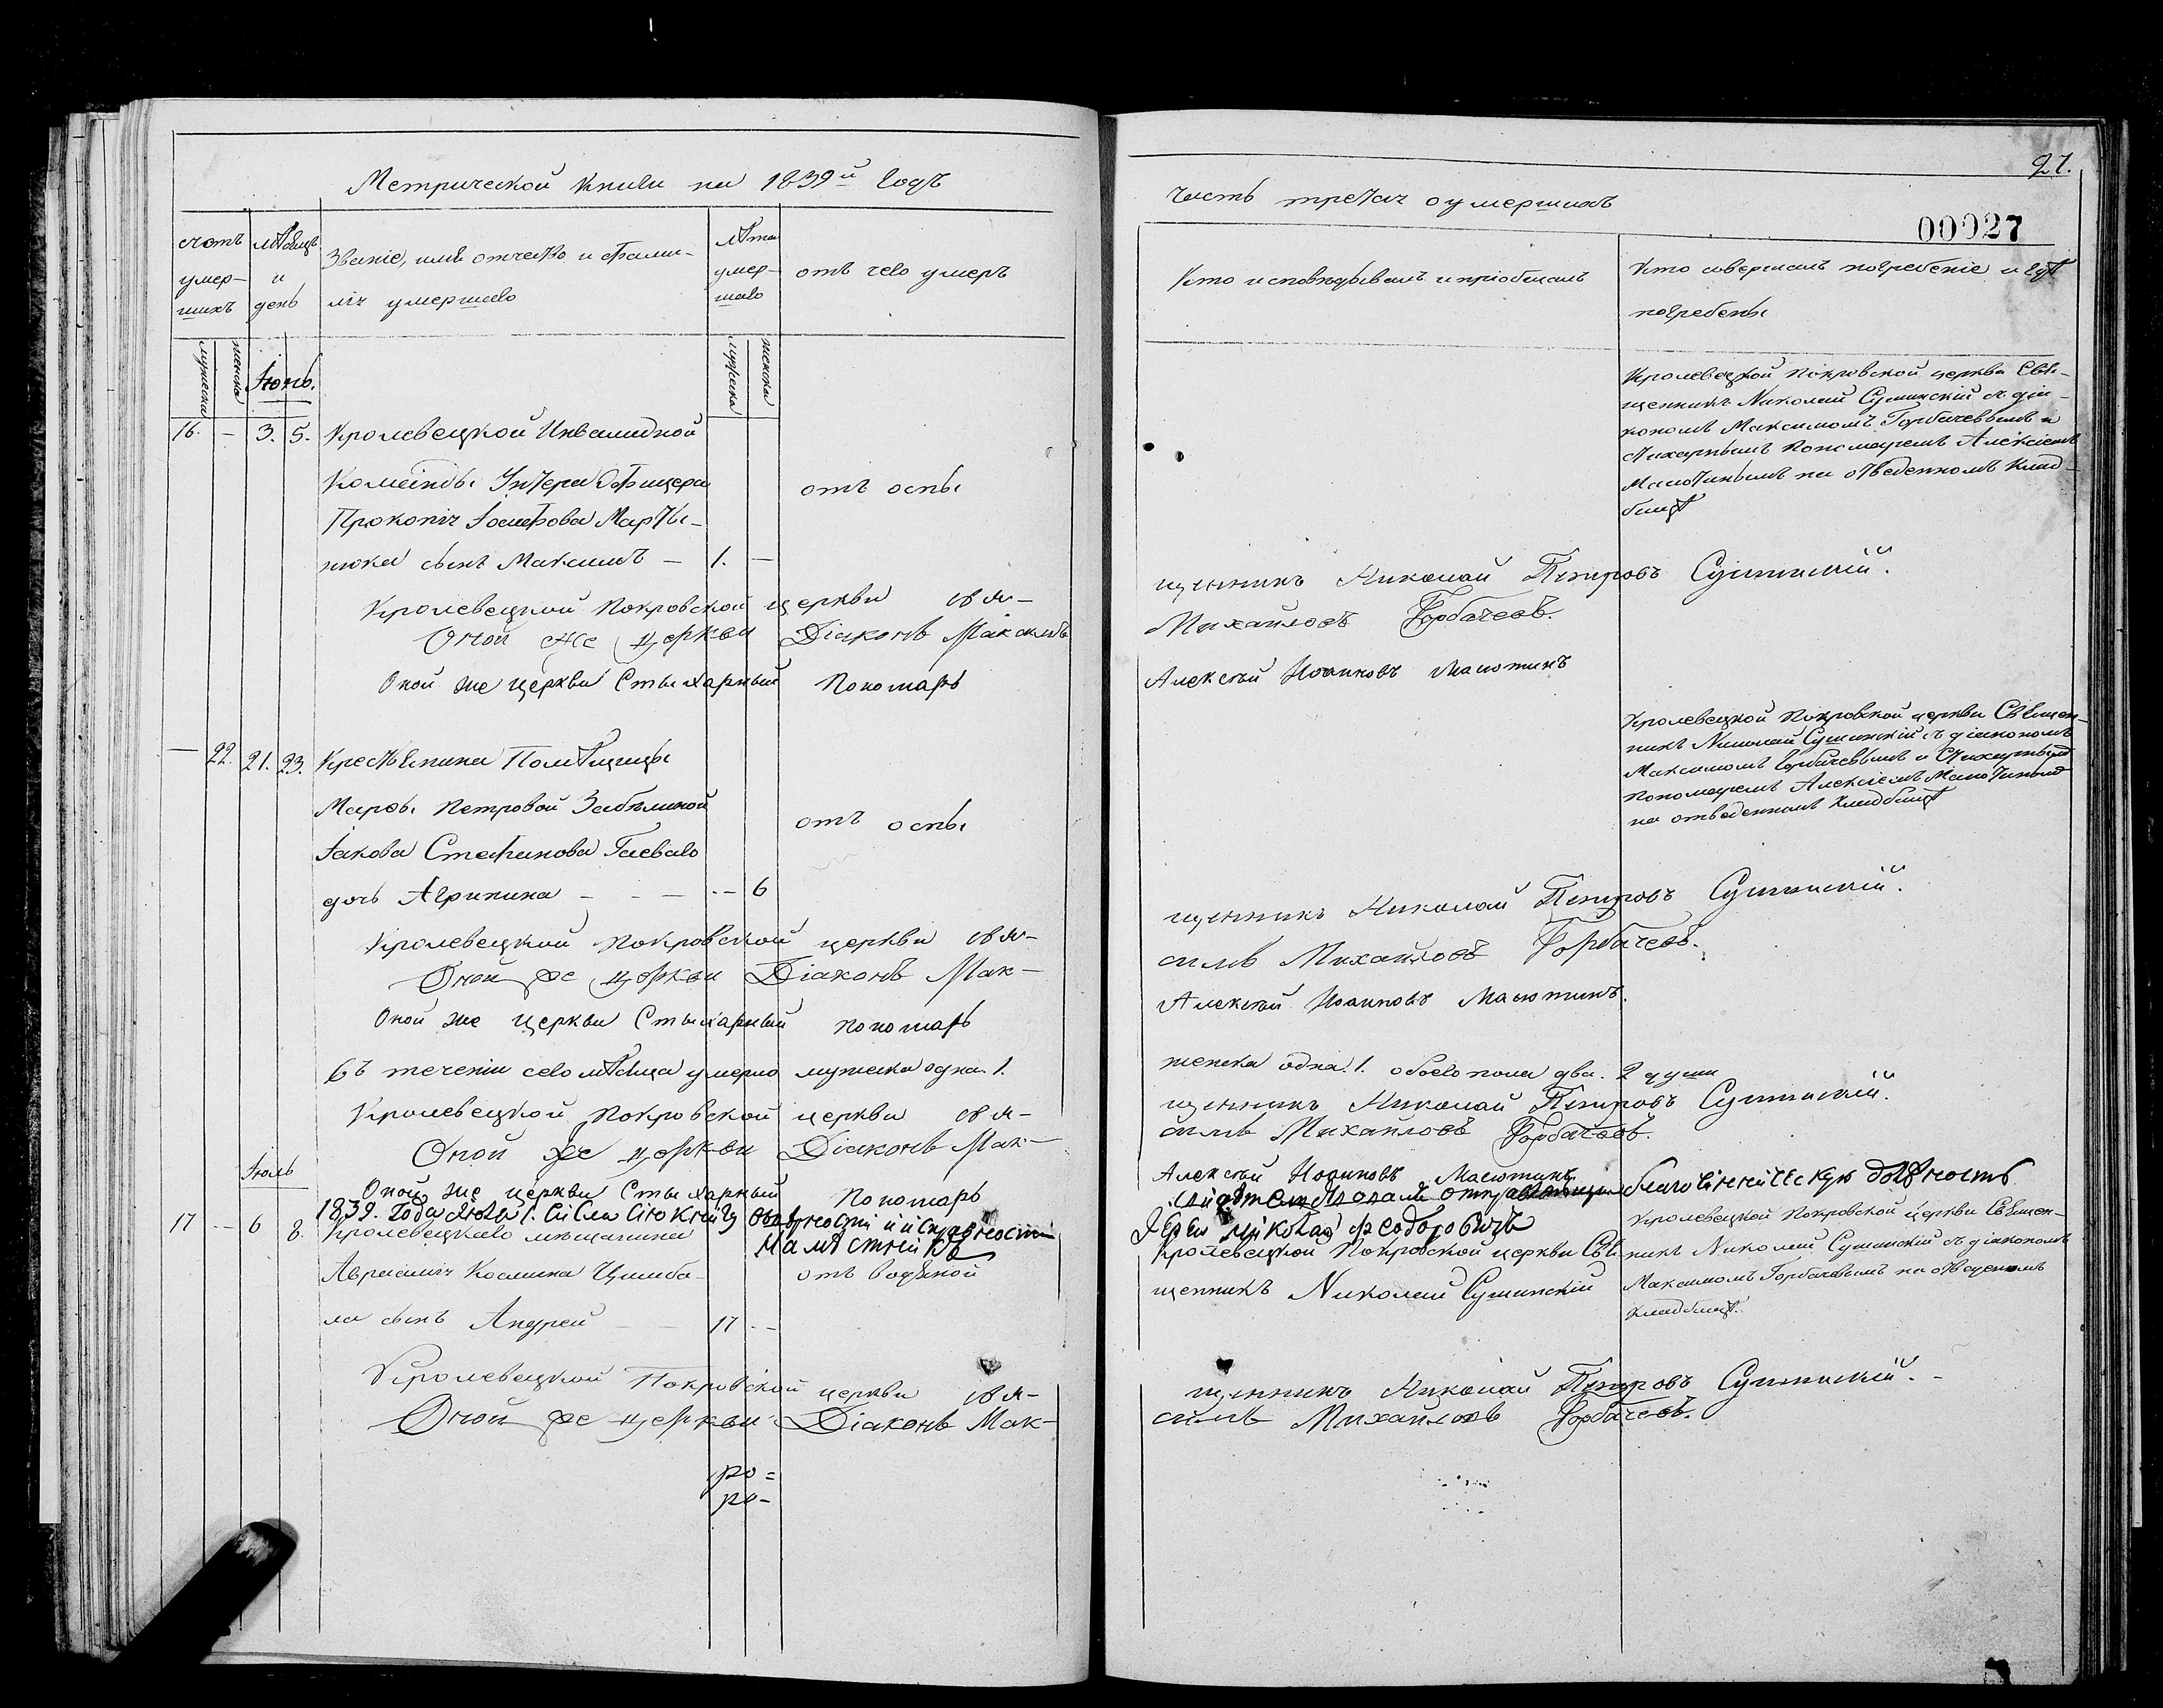 Метрической книги на 1839й годъ
счетъ умер-шихъ
мѣсяцъ и день
Званіе, имя отчество и фами-
лія умершаго
лѣта умер-шаго
отъ чего умеръ
мужеска
женска
Іюнь.
мужеска
женска
16. — 3. 5. Кролевецкой Инвалидной
Команды Унтера Офицера
отъ оспы
Прокопія Іосифова Марты-
нюка сынъ Максимъ — 1. —
Кролевецкой Покровской церкви свя-
Оной же церкви Діаконъ Максимъ
Оной же церкви Стыхарный Пономарь
— 22. 21. 23. Крестьянина Помѣщицы
Марѳы Петровой Забѣлиной
отъ оспы
Іакова Стефанова Гаеваго
дочь Агрипина — — — 6
Кролевецкой Покровской церкви свя-
Оной же церкви Діаконъ Мак-
Оной же церкви Стыхарный пономарь
Въ теченіи сего мѣсяца умерло мужеска одна. 1.
Кролевецкой Покровской церкви свя-
Оной же церкви Діаконъ Мак-
Іюль
Оной же церкви Стыхарный Пономарь
1839. Года Іюля 1. числа сію книгу
17 — 6 8. Кролевецкаго мѣщанина
Намѣстникъ
Авраамія Космина Цимба-
отъ водяной
ла сынъ Андрей — — 17 —
Кролевецкой Покровской церкви свя-
Оной же церкви Діаконъ Мак-
ро=
ро-
27.
Часть третая о умершихъ
00027
Кто исповѣдывалъ и пріобщалъ
Кто совершалъ погребеніе и гдѣ
погребены
Кролевецкой Покровской церкви Свя-
щенникъ Николай Сушинскій съ діа-
кономъ Максимомъ Горбачевымъ и
Стихарнымъ Пономаремъ Алексіемъ
Масютинымъ на отведенномъ клад-
бищѣ
щенникъ Николай Петровъ Сушинскій.
Михайловъ Горбачевъ.
Алексѣй Иоанновъ Масютинъ
Кролевецкой Покровской церкви Священ-
никъ Николай Сушинскій съ діакономъ
Максимомъ Горбачевымъ и Стихарнымъ
Пономаремъ Алексіемъ Масютинымъ
на отведенномъ кладбищѣ
щенникъ Николай Петровъ Сушинскій.
симъ Михайловъ Горбачевъ.
Алексѣй Иоанновъ Масютинъ.
женска одна. 1. обоего пола два. 2 души
щенникъ Николай Петровъ Сушинскій.
симъ Михайловъ Горбачевъ.
Алексѣй Иоанновъ Масютинъ
благочинническую должность
Іерей Николай Феодоровичъ
Кролевецкой Покровской церкви Свя-
щенникъ Николай Сушинскій
Кролевецкой Покровской церкви Священ-
никъ Николай Сушинскій съ діакономъ
Максимомъ Горбачевымъ на отведеномъ
кладбищѣ.
щенникъ Николай Петровъ Сушинскій.
симъ Михайловъ Горбачевъ.